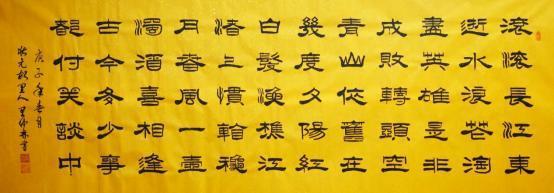 滚滚長江東
逝水浪花淘
盡英雄是非
成敗轉頭空
青山依舊在
幾度夕陽紅
白髮漁樵江
渚上慣看穐
月春風一壺
濁酒喜相逢
古今多少事
都付笑談中
庚子年春月
狀元故里人書